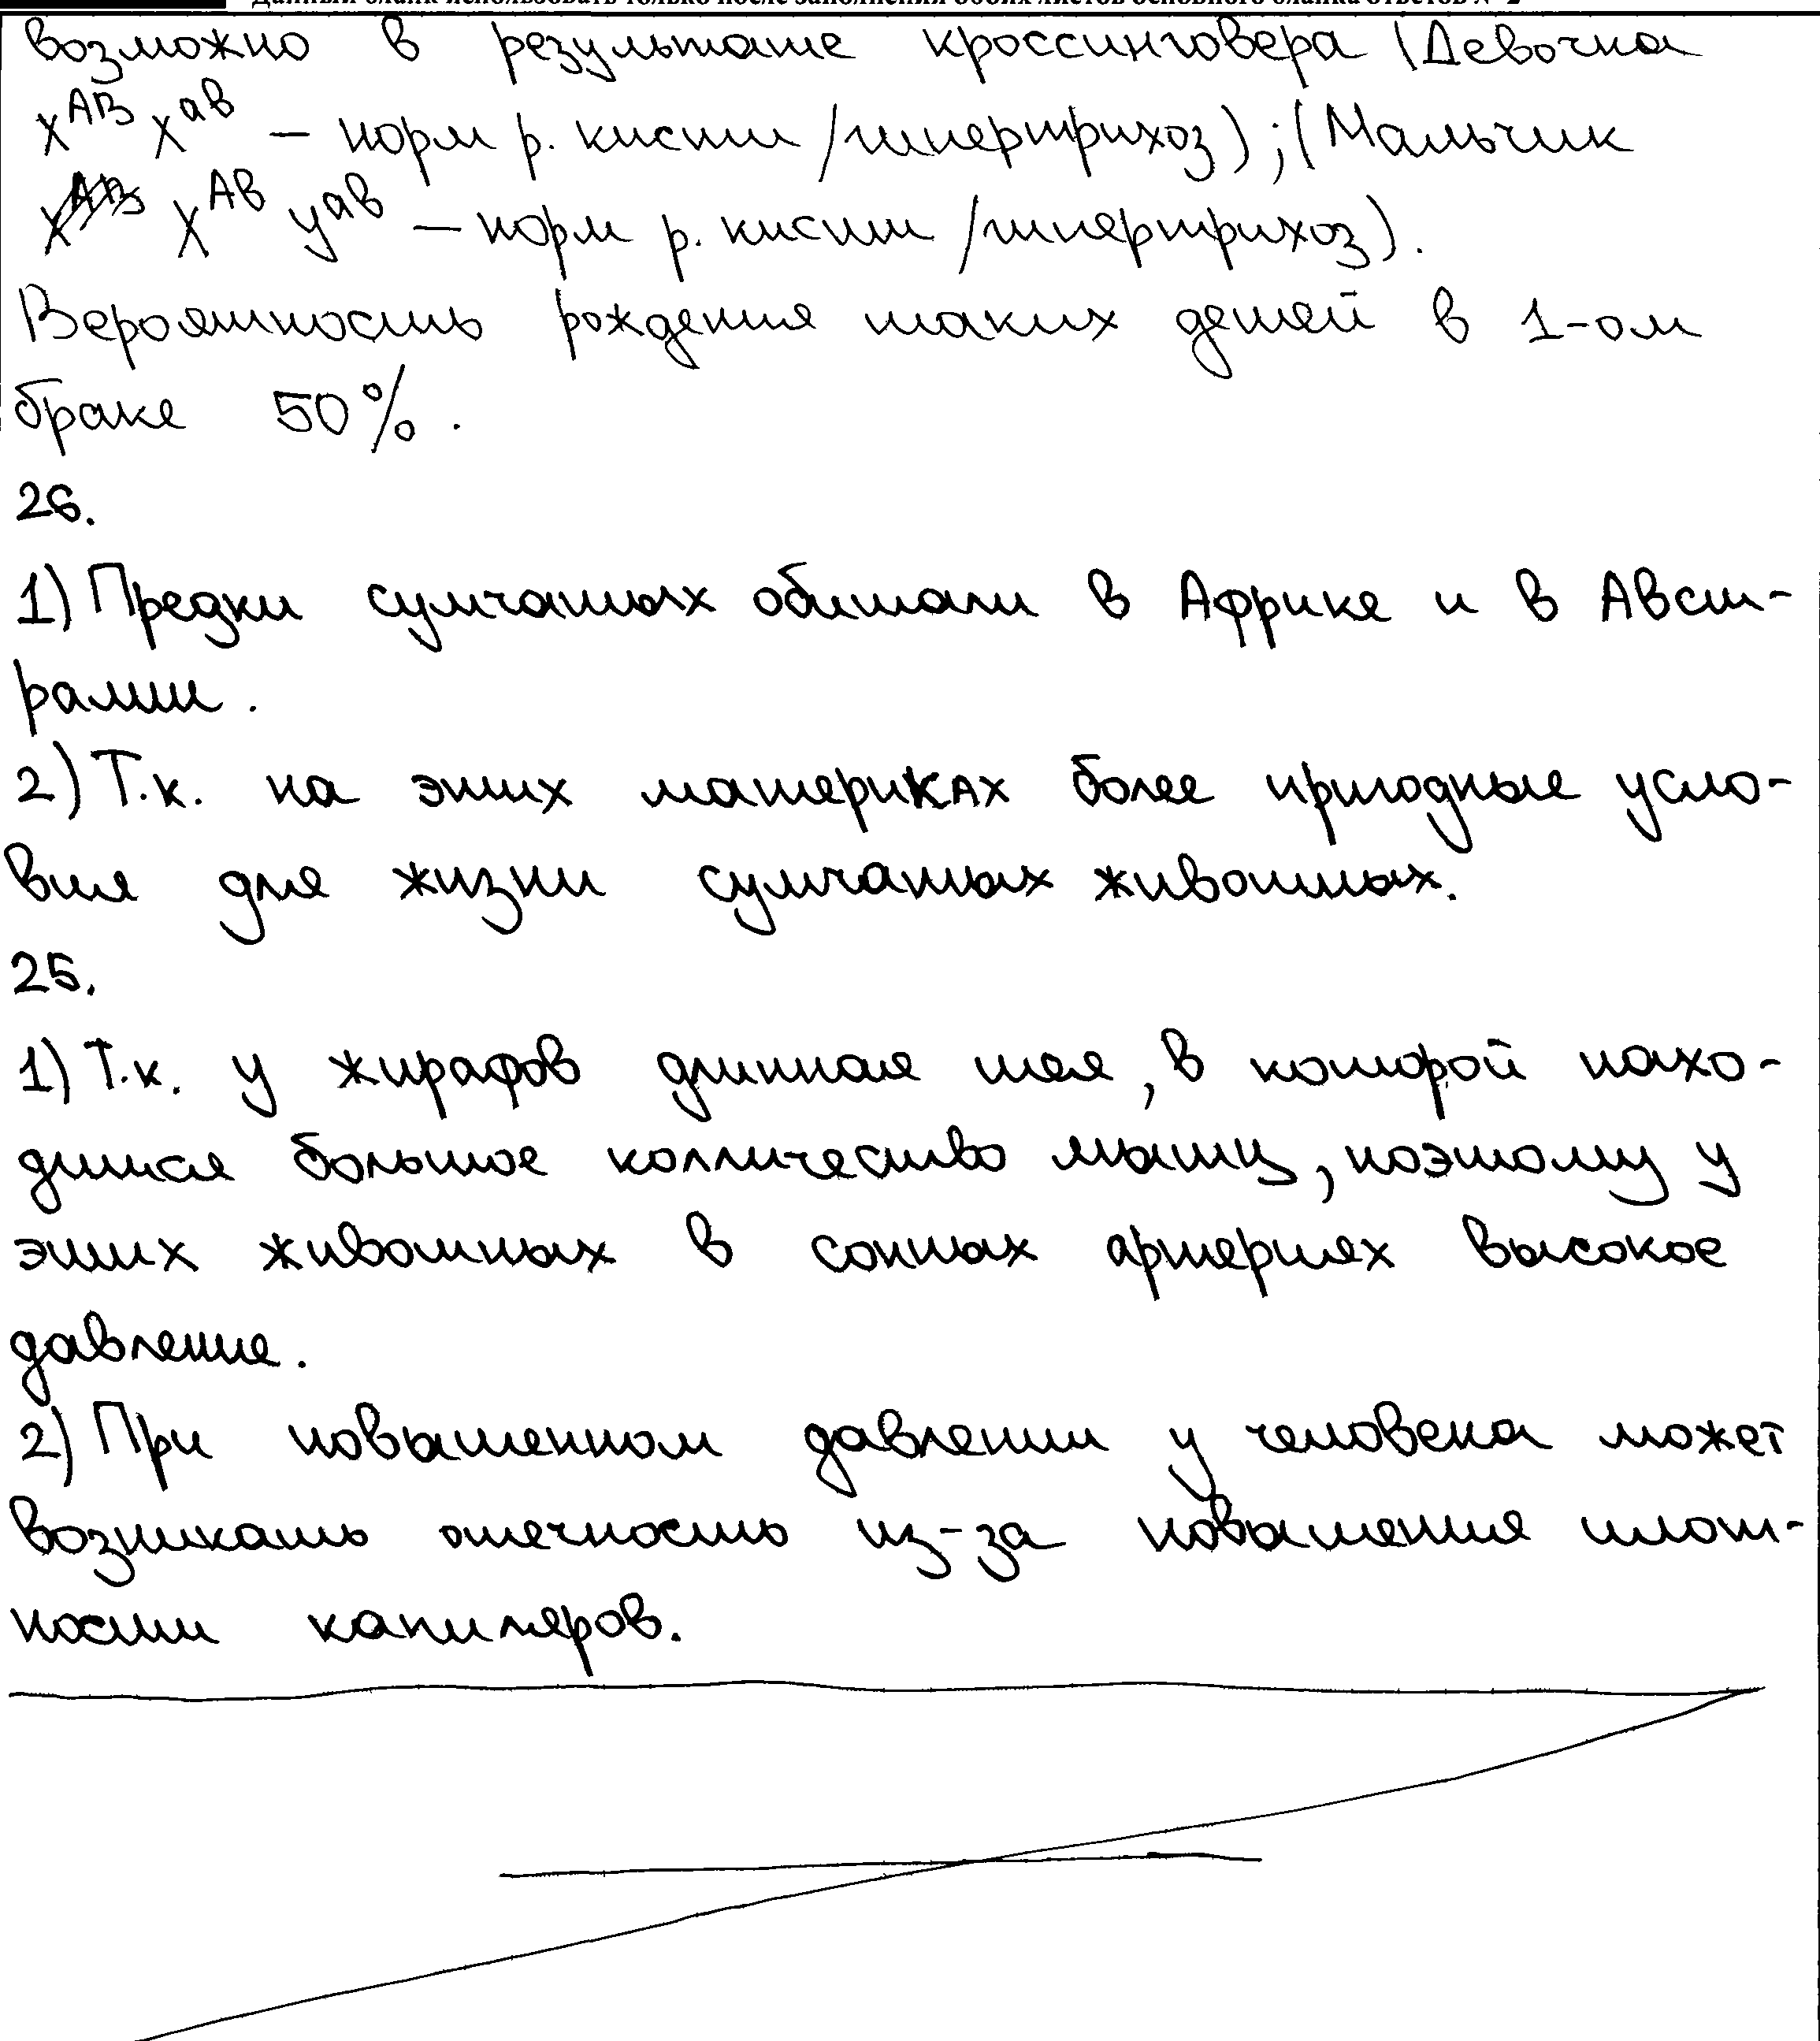 Данный бланк использовать только после заполнения обоих листов основного бланка ответов № 2
возможно в результате кроссинговера (Девочка
X^AB X^ав – норм р. кисти /гипертрихоз); (Мальчик
X^Ав У^ав – норм р. кисти /гипертрихоз).
Вероятность рождения таких детей в 1-ом
браке 50%.
26.
1) Предки сумчатых обитали в Африке и в Авст-
ралии.
2) Т.к. на этих материках более пригодные усло-
вия для жизни сумчатых животных.
25.
1) Т.к. у жирафов длинная шея, в которой нахо-
дится большое колличество мышц, поэтому у
этих животных в сонных артериях высокое
давление.
2) При повышенном давлении у человека может
возникать отечность из-за повышения плот-
ности капиляров.